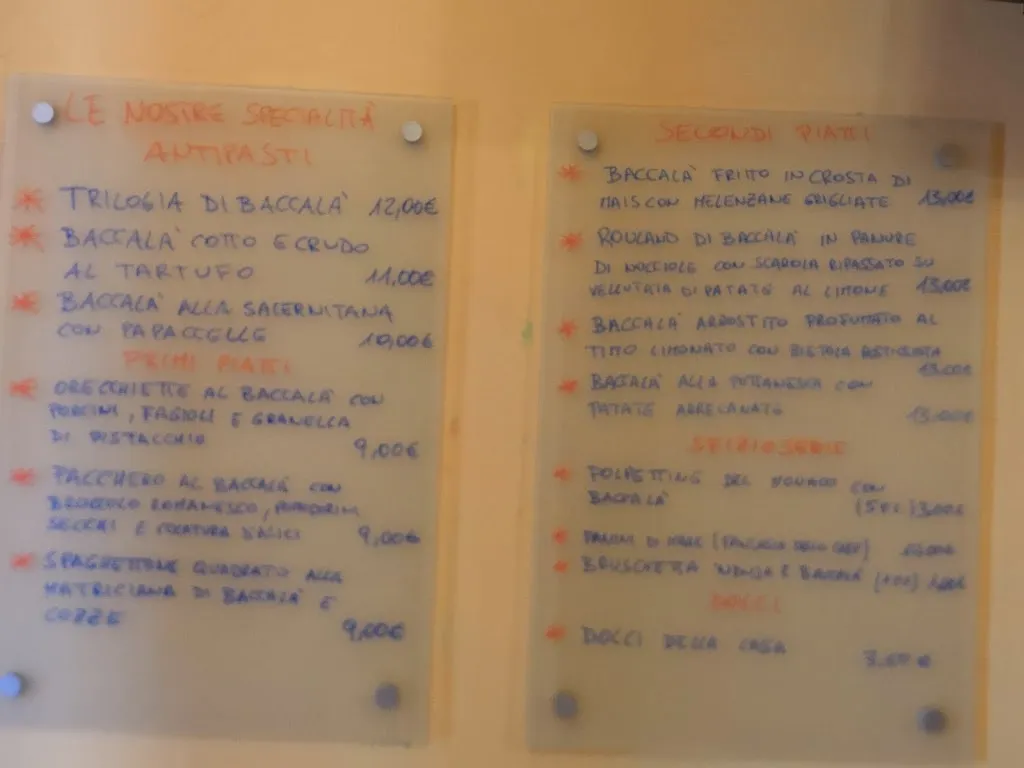 LE NOSTRE SPECIALITÀ
ANTIPASTI
* TRILOGIA DI BACCALA' 12,00€
* BACCALA' COTTO E CRUDO
AL TARTUFO 11,00€
* BACCALA' ALLA SALERNITANA
CON PAPACCELLE 10,00€
PRIMI PIATTI
* ORECCHIETTE AL BACCALA' CON
PORCINI, FAGIOLI E GRANELLA
DI PISTACCHIO 9,00€
* PACCHERO AL BACCALA' CON
BROCCOLO ROMANESCO, POMODORINI
SECCHI E COLATURA D'ALICI 9,00€
* SPAGHETTONE QUADRATO ALLA
MATRICIANA DI BACCALA' E
COZZE 9,00€
SECONDI PIATTI
* BACCALA' FRITTO IN CROSTA DI
MAIS CON MELENZANE GRIGLIATE 13,00€
* ROLLANO DI BACCALA' IN PANURE
DI NOCCIOLE CON SCAROLA RIPASSATO SU
VELLUTATA DI PATATE AL LIMONE 13,00€
* BACCALA' ARROSTITO PROFUMATO AL
TIMO LIMONATO CON BIETOLA
13,00€
* BACCALA' ALLA PUTTANESCA CON
PATATE ARRECANATE 13,00€
* POLPETTINE DEL MONACO CON
BACCALA' 3,00€
* PANINI DI MARE
* BRUSCHETTA 'NDUJA E BACCALA'
DOLCI
* DOLCI DELLA CASA